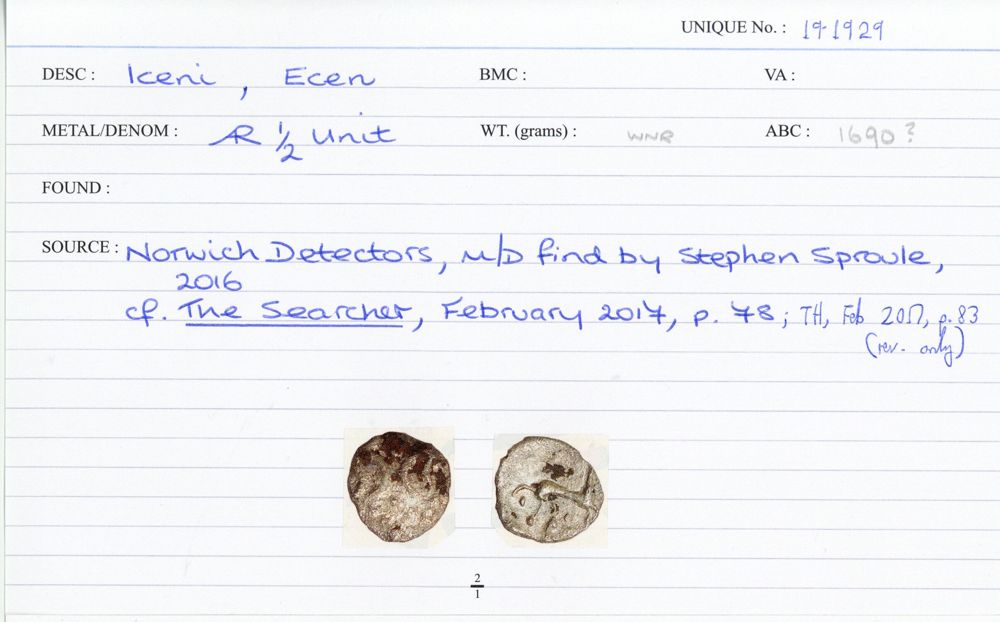 UNIQUE No. : 19-1929
DESC : Iceni, Ecen BMC : VA :
METAL/DENOM : AR 1/2 Unit WT. (grams) : WNR ABC : 1690?
FOUND :
SOURCE : Norwich Detectors, M/D find by Stephen Sproule,
2016
cf. The Searcher, February 2017, p. 78; TH, Feb 2017, p. 83
(rev. only)
2
1